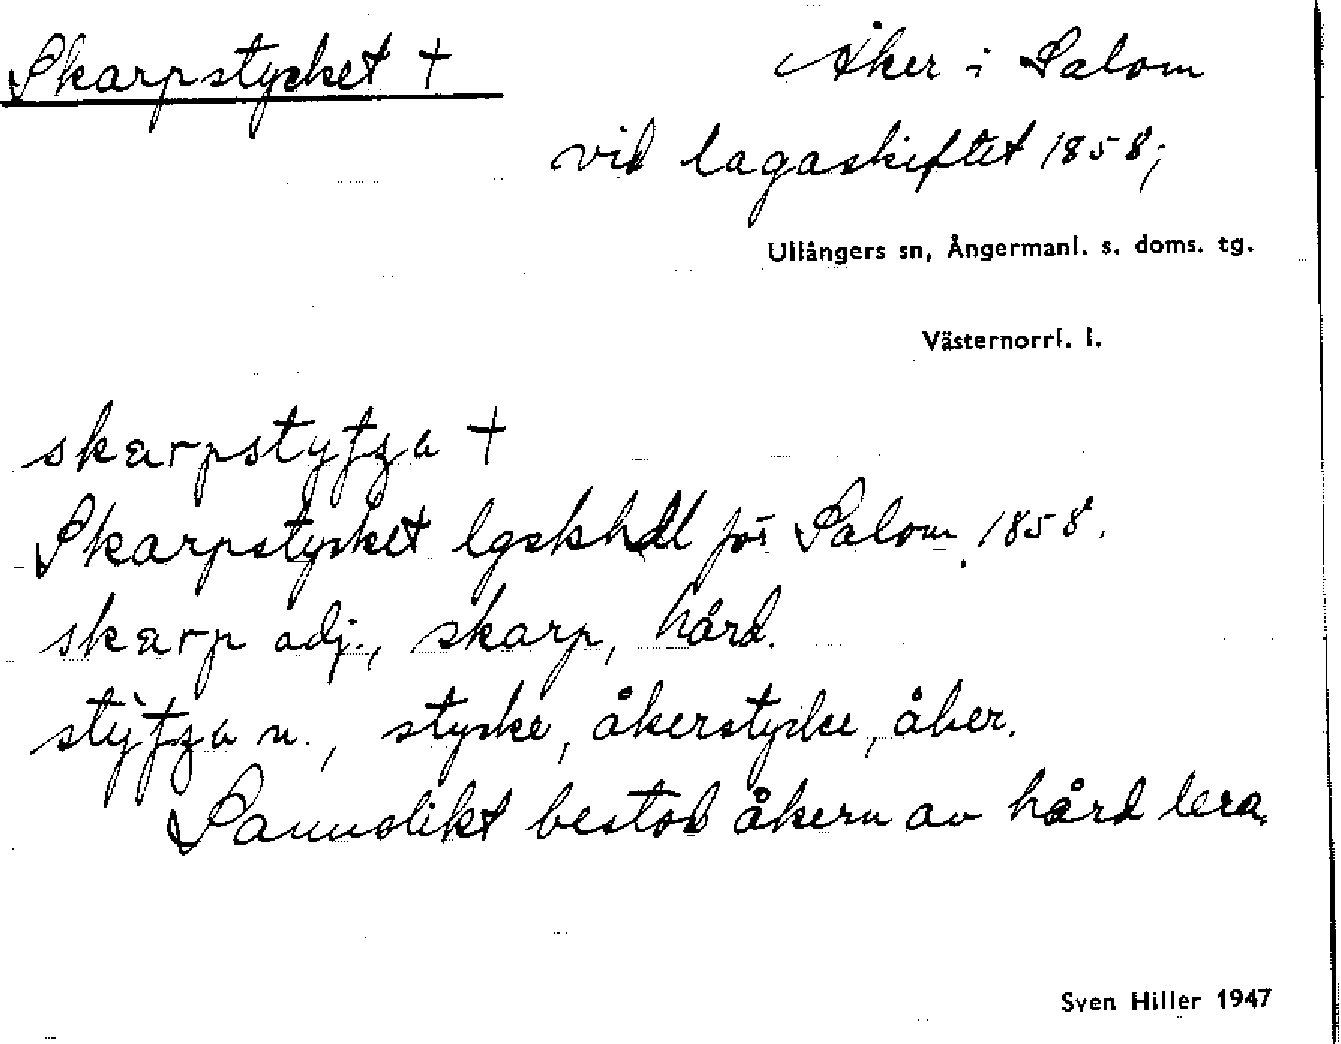 Skarpstycket † Åker i Salom
vid lagaskiftet 1858;
Ullångers sn, Ångermanl. s. doms. tg.
Västernorrl. l.
skarpstyʃʒa †
Skarpstycket lgskhdl för Salom 1858.
skarp adj., skarp, hård.
stỳʃʒa n., stycke, åkerstycke, åker.
Sannolikt bestod åkern av hård lera.
Sven Hiller 1947